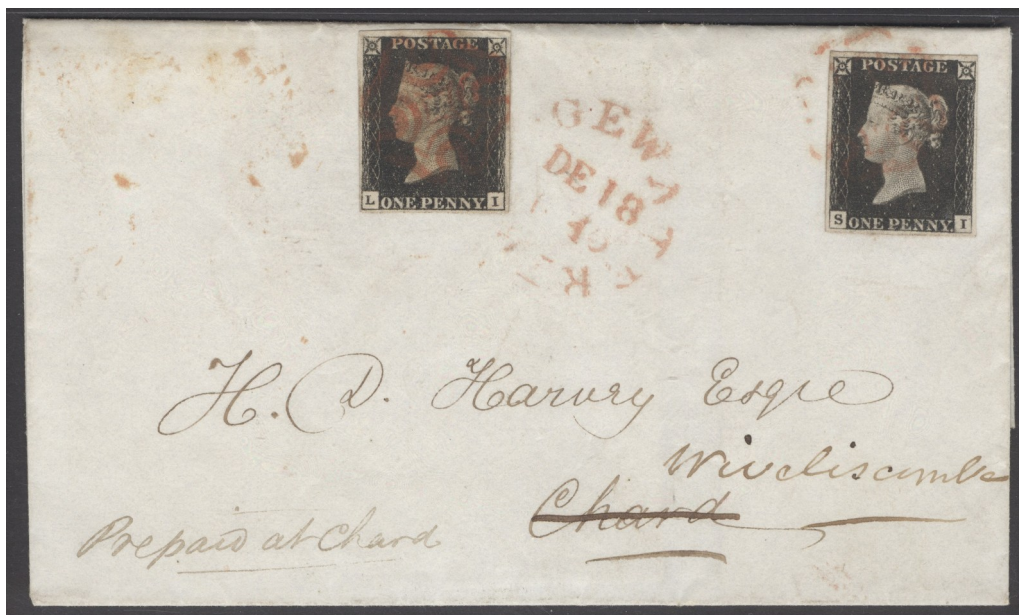 POSTAGE
L ONE PENNY I
POSTAGE
S ONE PENNY. I
DE 18
H. D. Harvey Esqre
Wiveliscombe
Chard
Prepaid at Chard